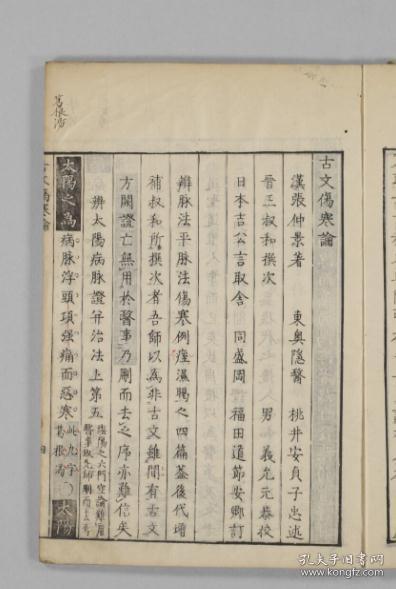 古文傷寒論
漢張仲景著 東奥隐醫 桃井安貞子忠述
晉王叔和撰次 男 義允元泰校
日本吉公言取舍 同盛岡 福田道節安卿訂
辨脉法平脉法傷寒例痓濕暍之四篇蓋後代增
補叔和所撰次者吾師以為非古文雖間有古文
方闕證亡無用於醫事乃刪而去之序亦難信矣
辨太陽病脉證并治法上第五
太陽之為病脉浮頭項强痛而惡寒
此九字
葛根湯
太陽
古文傷寒論
四
葛根湯
孔夫子旧书网